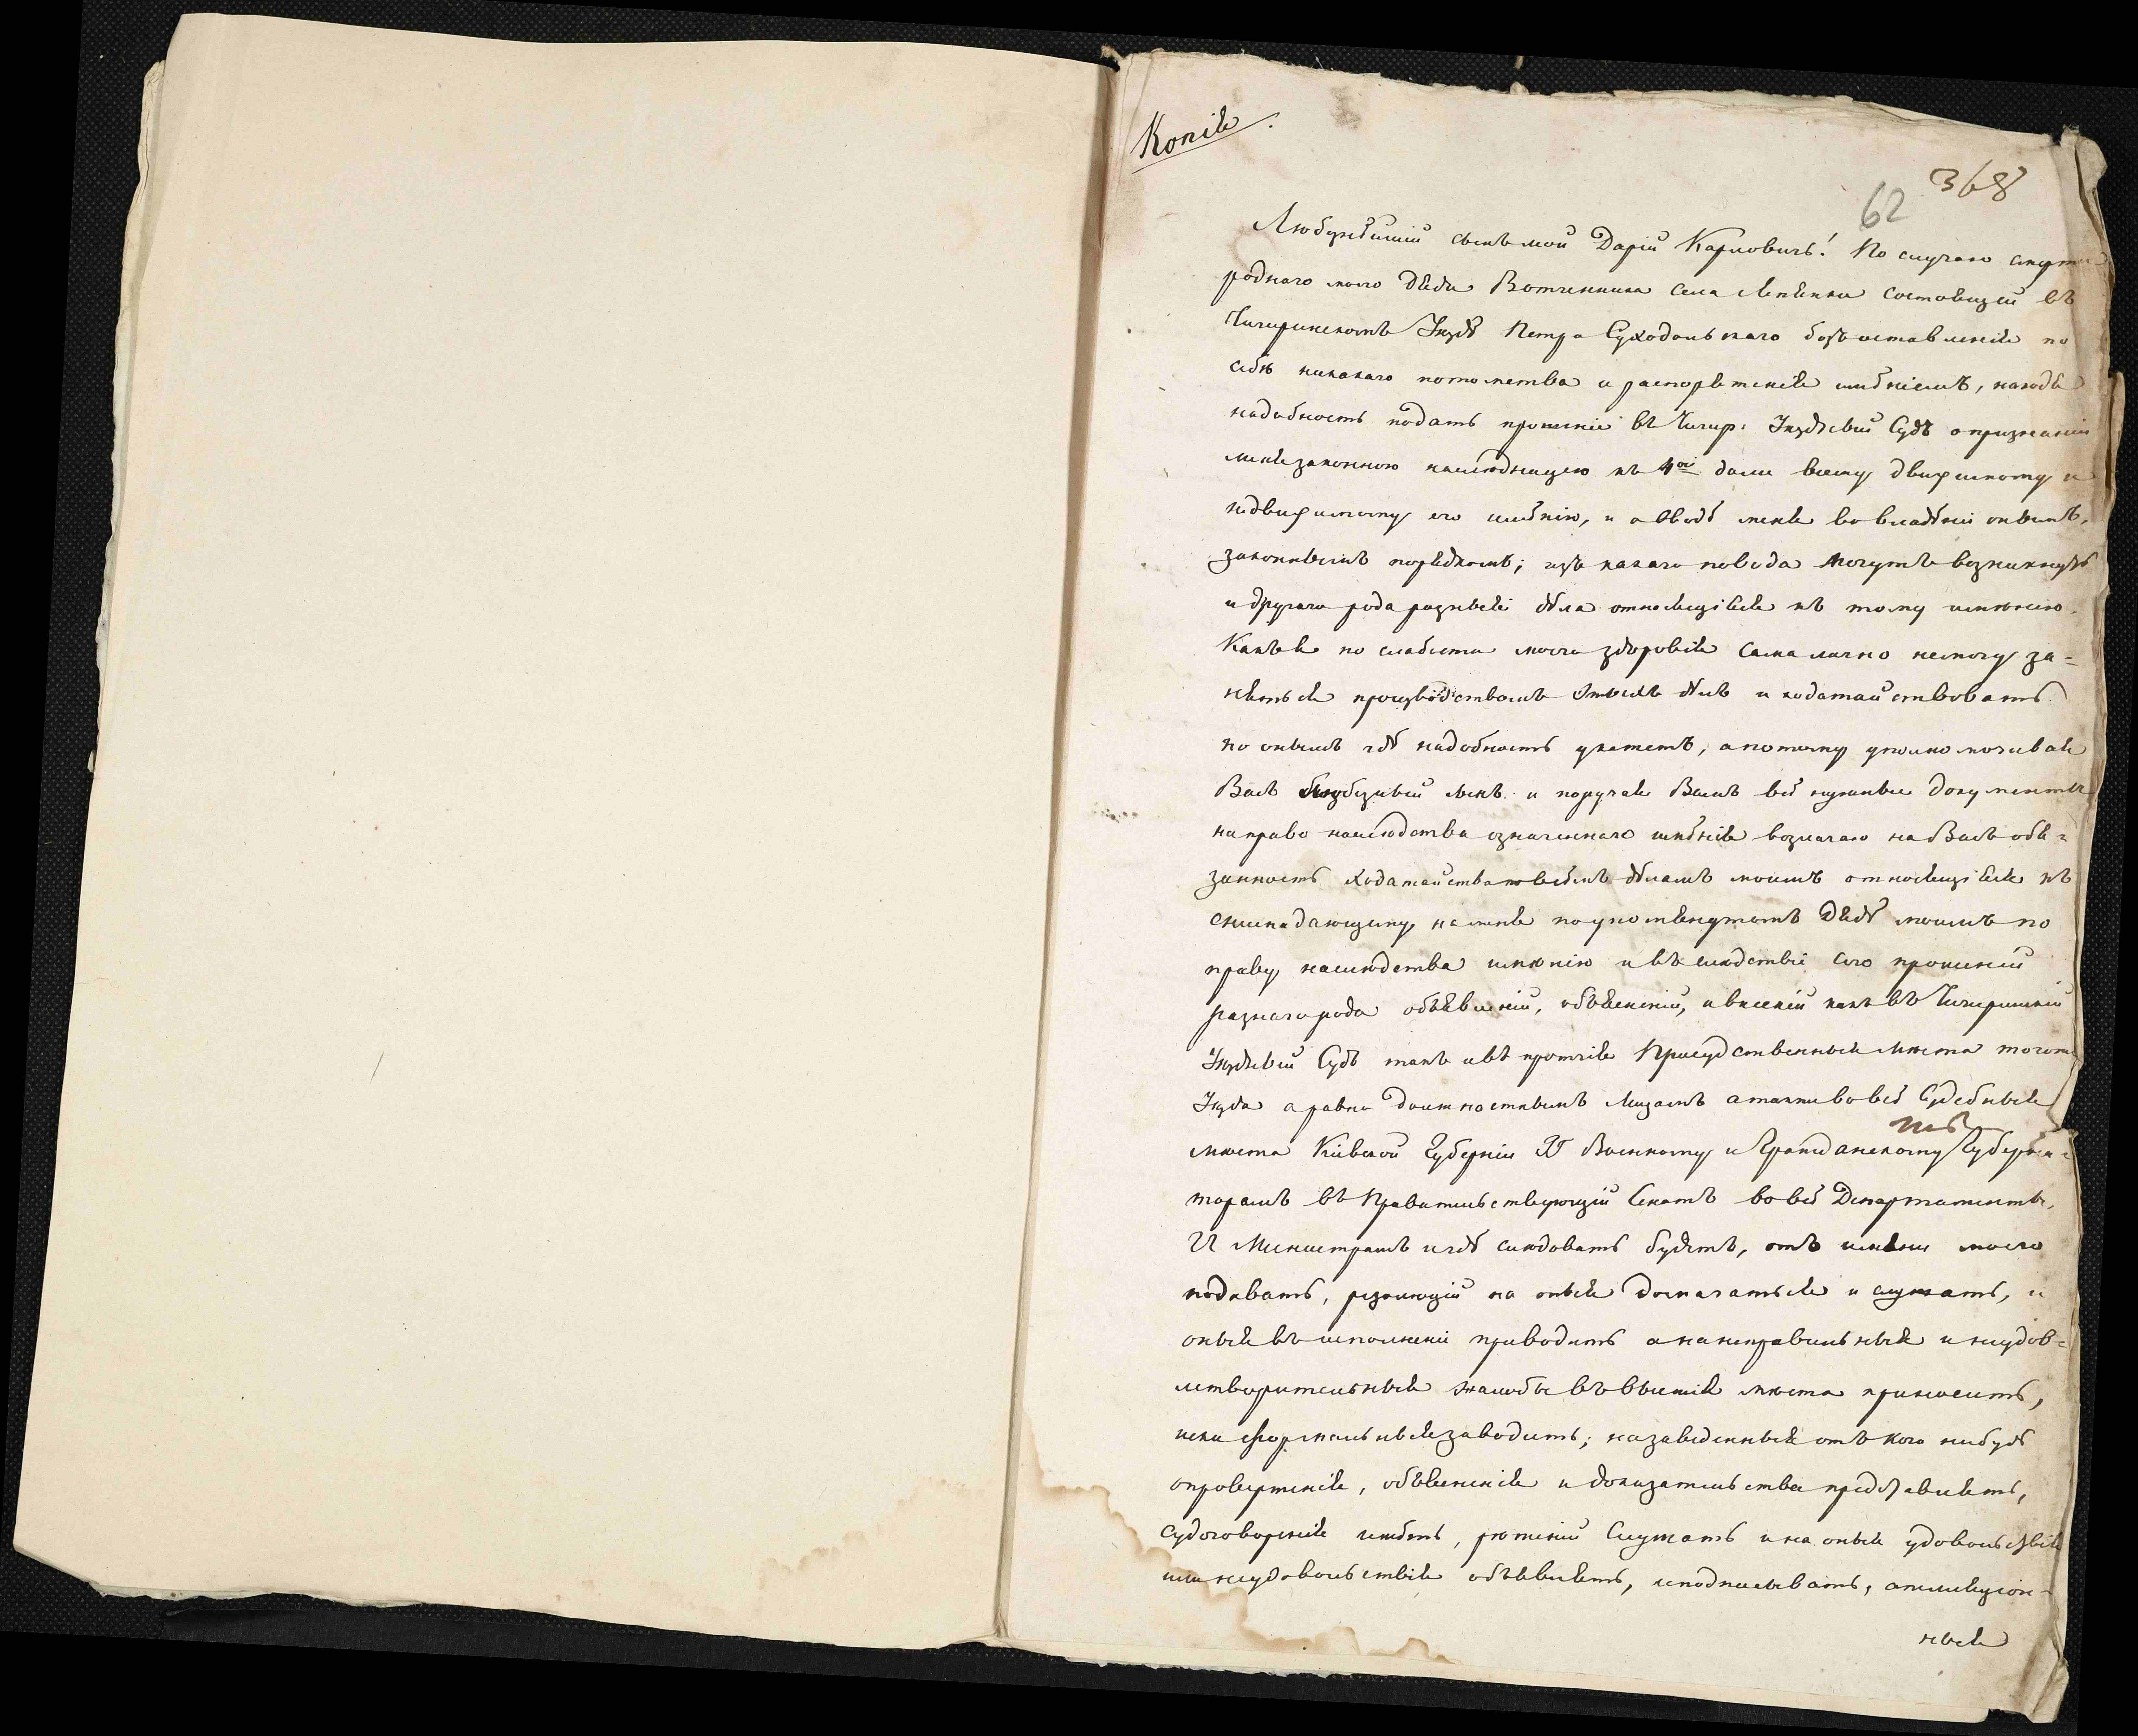 Копія.
368
62
Любезнѣйшій сынъ мой Дарій Карловичъ! По случаю смерти
роднаго моего дяди Вотчинника села состоящей въ
Чигиринскомъ Уездѣ Петра Суходольскаго безъ оставленія по
себѣ никакаго потомства и распоряженія имѣніемъ, находя
надобность подать прошеніе въ Чигир: Уездный Судъ о признаніи
меня законною наследницею къ 4ой доли всему движимому и
недвижимому его имѣнію, и о вводѣ меня во владѣніе онымъ,
законнымъ порядкомъ; изъ какаго повода могутъ возникнуть
и другаго рода разныя дѣла относящіяся къ тому имению.
Какъ я по слабости моего здоровія сама лично немогу за=
няться производствомъ этыхъ дѣлъ и ходатайствовать
по онымъ гдѣ надобность укажетъ, а потому уполномочивая
Васъ любезный сынъ и поручая Вамъ всѣ нужные документы
на право наследства означеннаго имѣнія возлагаю на Васъ обя=
занность ходатайства по всѣмъ дѣламъ моимъ относящіяся къ
снисподающему на меня по упомянутомъ дядѣ моимъ по
праву наследства имению и въ следствіе сего прошеній
разнаго рода объявленій, объясненій, и внесеній какъ въ Чигиринскій
Уездный Судъ такъ и въ протчія Присудственныя места тогоже
Уезда а равно должностнымъ Лицамъ а также во всѣ Судебныя
места Кіевской Губерніи ГГ Военному и Гражданскому Губерна=
торамъ въ Правительствующій Сенатъ во всѣ Департаменты,
И Министрамъ и гдѣ следовать будетъ, отъ имяни моего
подавать, резолюцій на оныя домагаться и слушать, и
оныя въ исполненіе приводить а на неправильныя и неудов=
летворительныя жалобы въ высшія места приносить,
иски формальныя заводить; на заведенныя отъ кого нибудь
опроверженія, объясненія и доказательства представлять,
судоговоренія имѣть, решеній слушать и на оныя удовольствія
или неудовольствія объявлять, и подписывать, аппеляціон=
ныя